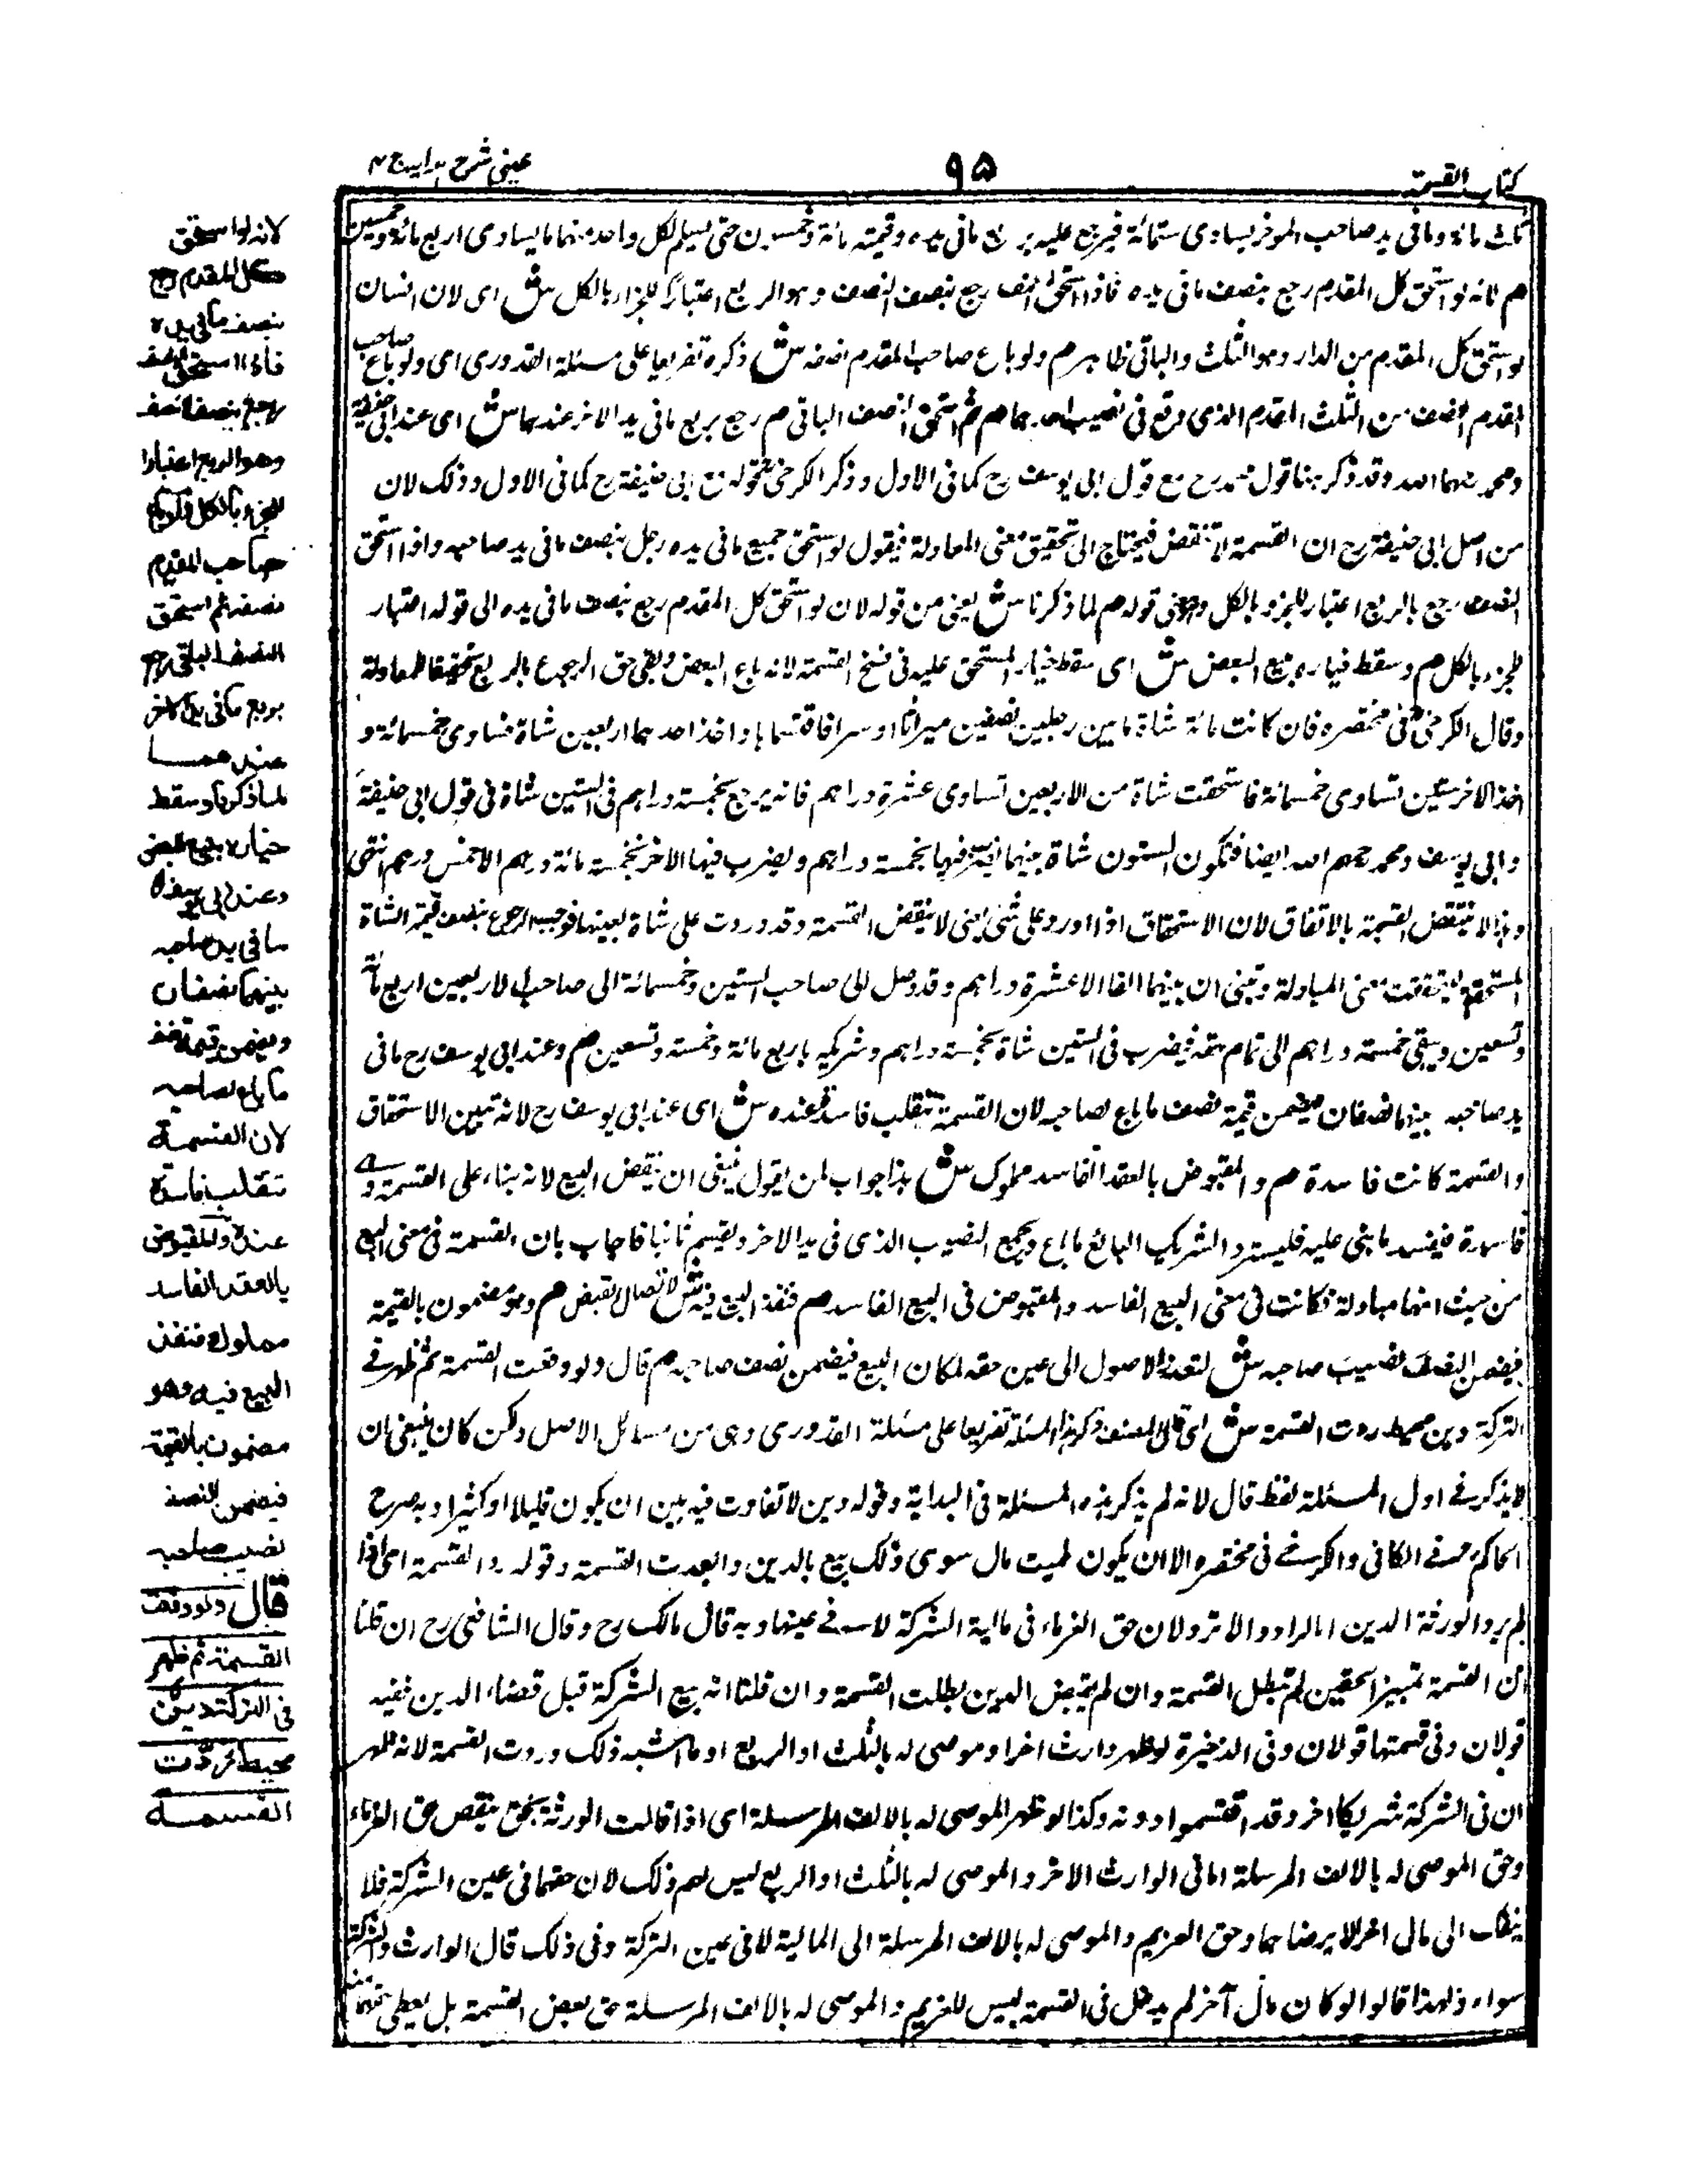 كتاب القسمة
٩٥
عينى شرح هدايه ج ٤
ثلث مائة وما فى يد صاحب الموخر يساوى ستمائة فيرجع عليه بربع ما فى يده وقيمته مائة وخمسون حتى يسلم لكل واحد منهما ما يساوى اربع مائة وخمسين
م لانه لو استحق كل المقدم رجع بنصف ما فى يده فاذا استحق النصف رجع بنصف النصف وهو الربع اعتبارا للجزء بالكل ش اى لان انسان
لو استحق كل المقدم من الدار وهو الثلث والباقى ظاهر م ولو باع صاحب المقدم نصفه ش ذكره تفريعا على مسئلة القدورى اى ولو باع صاحب
المقدم النصف من الثلث المقدم الذى وقع فى نصيب احدهما م ثم استحق النصف الباقى م رجع بربع ما فى يد الاخر عندهما ش اى عند ابى حنيفة
ومحمد رحمهما الله وقد ذكر هنا قول محمد رح مع قول ابى يوسف رح كما فى الاول وذكر الكرخى قوله مع ابى حنيفة رح كما فى الاول وذلك لان
من اصل ابى حنيفة رح ان القسمة لا تنقض فيحتاج الى تحقيق معنى المعادلة فيقول لو استحق جميع ما فى يده رجل بنصف ما فى يد صاحبه واذا استحق
النصف رجع بالربع اعتبار للجزء بالكل وهو معنى قوله م لما ذكرنا ش يعنى من قوله لان لو استحق كل المقدم رجع بنصف ما فى يده الى قوله اعتبار
للجزء بالكل م وسقط خياره ببيع البعض ش اى سقط خيار المستحق عليه فى فسخ القسمة لانه باع البعض وبقى حق الرجوع بالربع تحقيقا للمعادلة
وقال الكرخى فى مختصره فان كانت مائة شاة ما بين رجلين نصفين ميراثا او شراء فاقتسماها واخذ احدهما اربعين شاة تساوى خمسمائة و
اخذ الاخر ستين تساوى خمسمائة فاستحقت شاة من الاربعين تساوى عشرة دراهم فانه يرجع بخمسة دراهم فى الستين شاة فى قول ابى حنيفة
وابى يوسف ومحمد رحمهم الله ايضا فتكون الستون شاة بينهما يضرب فيها بخمسة دراهم ويضرب فيها الاخر بخمسة مائة درهم الا خمس درهم انتهى
وهذا لا تنتقض القسمة بالاتفاق لان الاستحقاق اذا ورد على شئ بعينه لا ينقض القسمة وقد وردت على شاة بعينها فوجب الرجوع بنصف قيمة الشاة
المستحقة ليتحقق معنى المبادلة وتبنى ان بينهما الفا الا عشرة دراهم وقد وصل الى صاحب الستين وخمسمائة الى صاحب الاربعين اربع مائة
وتسعين ويبقى خمسة دراهم الى تمام حقه فيضرب فى الستين شاة بخمسة دراهم وشريكه باربع مائة وخمسة وتسعين م وعند ابى يوسف رح ما فى
يد صاحبه بينهما نصفان ويضمن قيمة نصف ما باع لصاحبه لان القسمة تنقلب فاسدة عنده ش اى عند ابى يوسف رح لانه تبين الاستحقاق
والقسمة كانت فاسدة م والمقبوض بالعقد الفاسد مملوك ش هذا جواب لمن يقول ينبغى ان ينقض البيع لانه بناء على القسمة وهى
فاسدة فيفسد ما بنى عليه فليسترد الشريك البائع ما باع ويجمع النصيب الذى فى يد الاخر ويقسم ثانيا فاجاب بان القسمة فى معنى البيع
من حيث انها مبادلة فكانت فى معنى البيع الفاسد والمقبوض فى البيع الفاسد م فنفذ البيع فيه ش لاتصال القبض م وهو مضمون بالقيمة
فيضمن النصف نصيب صاحبه ش لتعذر الاصول الى عين حقه لمكان البيع فيضمن نصف صاحبه م قال ولو وقعت القسمة ثم ظهر فے
التركة دين محيط ردت القسمة ش اى قال المصنف ذكر هذه المسئلة تفريعا على مسئلة القدورى وهى من مسائل الاصل ولكن كان ينبغى ان
لا يذكر فے اول المسئلة لفظ قال لانه لم يذكر هذه المسئلة فى البداية وقوله دين لا تفاوت فيه بين ان يكون قليلا او كثيرا وبه صرح
الحاكم رح فے الكافى والكرخے فى مختصره الا ان يكون لميت مال سوى ذلك بيع بالدين وابعدت القسمة وقوله رد القسمة اى اذا
لم يرد الورثة الدين اما لو ادوا لا ترد ولان حق الغرماء فى مالية الشركة لا فے عينها وبه قال مالك رح وقال الشافعى رح ان قلنا
ان القسمة تمييز الحقين لم تبطل القسمة وان لم يقبض الدين بطلت القسمة وان قلنا انه بيع الشركة قبل قضاء الدين ففيه
قولان وفى قسمتها قولان وفى الذخيرة لو ظهر وارث اخر او موصى له بالثلث او الربع او ما اشبه ذلك وردت القسمة لانه ظهر
ان فى الشركة شريكا اخر وقد اقتسموا دونه وكذا لو ظهر الموصى له بالالف المرسلة اى اذا قالت الورثة بحق ينقص حق الغرماء
وحق الموصى له بالالف المرسلة اما فى الوارث الاخر والموصى له بالثلث او الربع ليس لهم ذلك لان حقهما فى عين الشركة فلا
ينقل الى مال اخر الا برضاهما وحق الغريم والموصى له بالالف المرسلة الى المالية لا فى عين التركة وفى ذلك قال الوارث والشركة
سواء ولهذا قالوا لو كان مال آخر لم يدخل فى القسمة ليس للغريم والموصى له بالالف المرسلة حق بعض القسمة بل يعطى حقهما منه
لانه لو استحق
كل المقدم رجع
بنصف ما فى يده
فاذا استحق النصف
رجع بنصف النصف
وهو الربع اعتبارا
للجزء بالكل ولو باع
صاحب المقدم
نصفه ثم استحق
النصف الباقى رجع
بربع ما فى يد الاخر
عندهما
لما ذكرنا وسقط
خياره ببيع البعض
وعند ابى يوسف رح
ما فى يد صاحبه
بينهما نصفان
ويضمن قيمة نصف
ما باع لصاحبه
لان القسمة
تنقلب فاسدة
عنده والمقبوض
بالعقد الفاسد
مملوك فنفذ
البيع فيه وهو
مضمون بالقيمة
فيضمن النصف
نصيب صاحبه
قال ولو وقعت
القسمة ثم ظهر
فى التركة دين
محيط ردت
القسمة